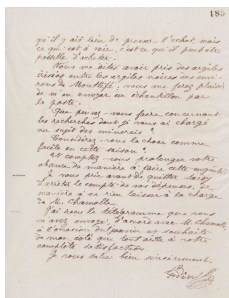 185
qu'il y ait lieu de presser l'achat, mais
ce qui est à voir, c'est ce qu'il peut être
possible d'acheter.
Vous me dites avoir pris des argiles
entre les argiles noires des envi-
rons de vous me ferez plaisir
de m'en envoyer un échantillon par
la poste.
Que pouvez-vous faire concernant
les recherches dont je vous ai chargé
au sujet des minerais?
Considérez-vous la chose comme
faite en cette saison?
Et comptez-vous prolonger votre
absence de manière à faire cette
Je vous prie avant de quitter
d'arrêter le compte de vos dépenses, de
manière à ne rien laisser à la charge
de M.
J'ai reçu le télégramme que vous
m'avez envoyé, d'accord avec M.
à l'occasion du janvier et souhaite
de mon côté que tout aille à votre
complète satisfaction.
Je vous salue bien sincèrement.
Godin